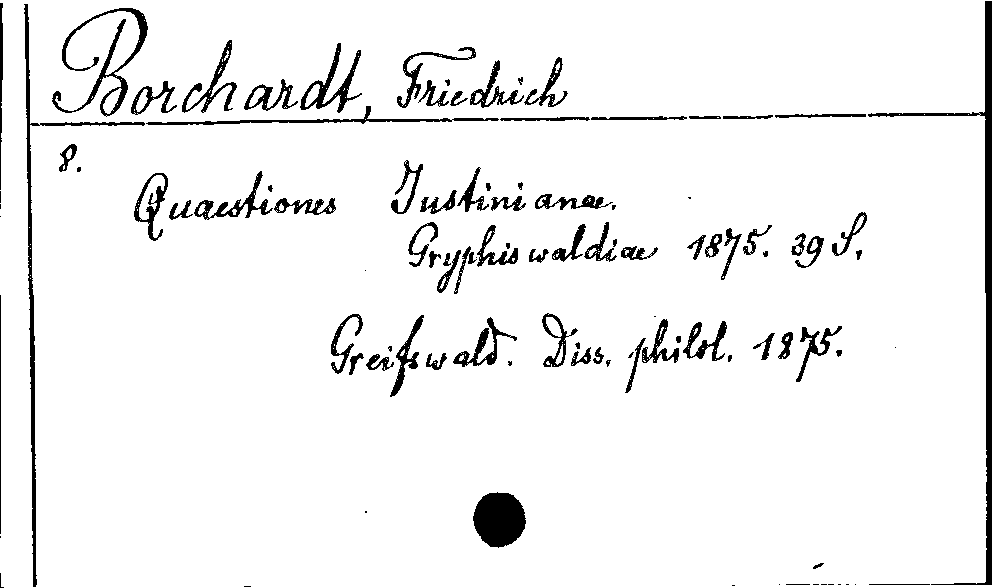 Borchardt, Friedrich
8.
Quaestiones Justinianae.
Gryphiswaldiae 1875. 39 S.
Greifswald. Diss. philol. 1875.